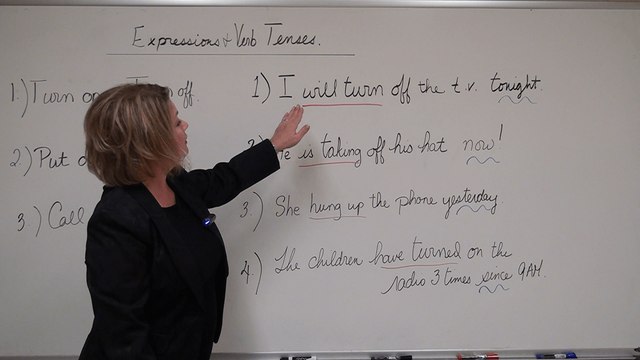 Expressions & Verb Tenses.
1.) Turn on off.
2) Put
3.) Call
1) I will turn off the t.v. tonight.
is taking off his hat now!
3.) She hung up the phone yesterday.
4.) The children have turned on the
radio 3 times since 9AM.